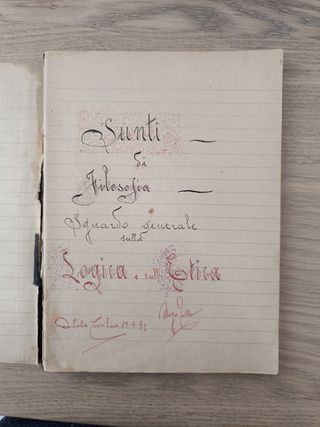 Sunti
di
Filosofia
Sguardo generale
sulla
Logica e sull' Etica